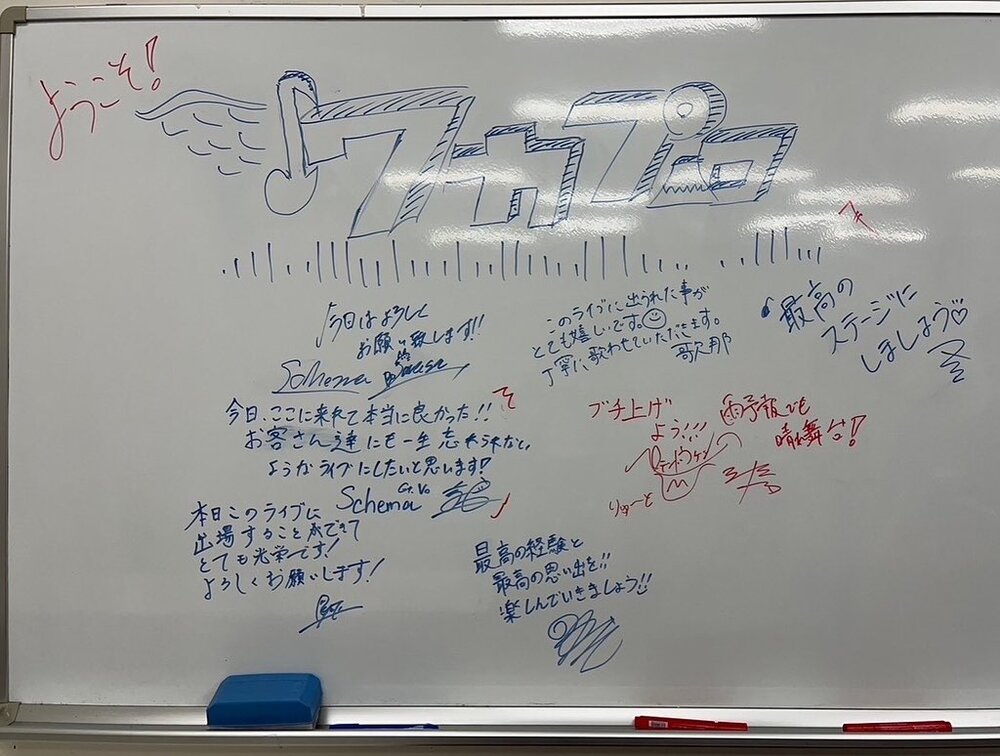 ようこそ!
ワカプロ
今日はよろしく
お願い致します!!
Schema
このライブに出られた事が
とても嬉しいです。
丁寧に歌わせていただきます。
歌那
最高の
ステージに
しましょう♡
今日、ここに来れて本当に良かった!!
お客さん達にも一生忘れられない
ようなライブにしたいと思います!
Schema Gt.Vo
そ
ブチ上げ
よう!!!
雨予報でも
晴れ舞台!
りゅーと
本日このライブに
出場することができて
とても光栄です!
よろしくお願いします!
最高の経験と
最高の思い出を!!
楽しんでいきましょう!!